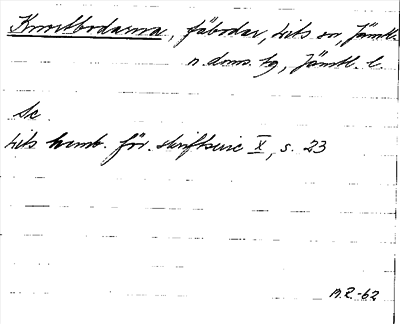 Knortbodarna, fäbodar, Lits sn, Jämtl.
n. doms. hg, Jämtl. l.
Se
Lits hemb. för. skriftserie X, s. 23
M.R.-62